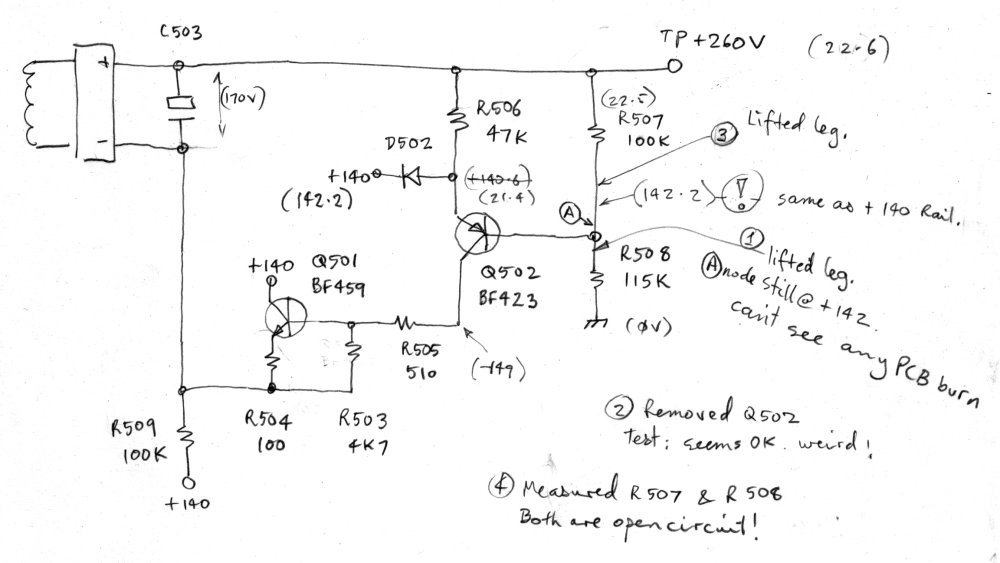 C503
TP +260V (22.6)
+
(170V)
R506
47K
(22.5)
R507
100K
③ Lifted leg.
D502
+140
(142.2)
(+140.6)
(21.4)
(142.2) ! same as +140 Rail.
Ⓐ
-
① lifted leg.
Ⓐ node still @ +142.
can't see any PCB burn
R508
115K
(0V)
Q502
BF423
+140
Q501
BF459
R505
510
(-149)
R509
100K
R504
100
R503
4K7
+140
② Removed Q502
Test: seems OK. weird!
④ Measured R507 & R508
Both are open circuit!